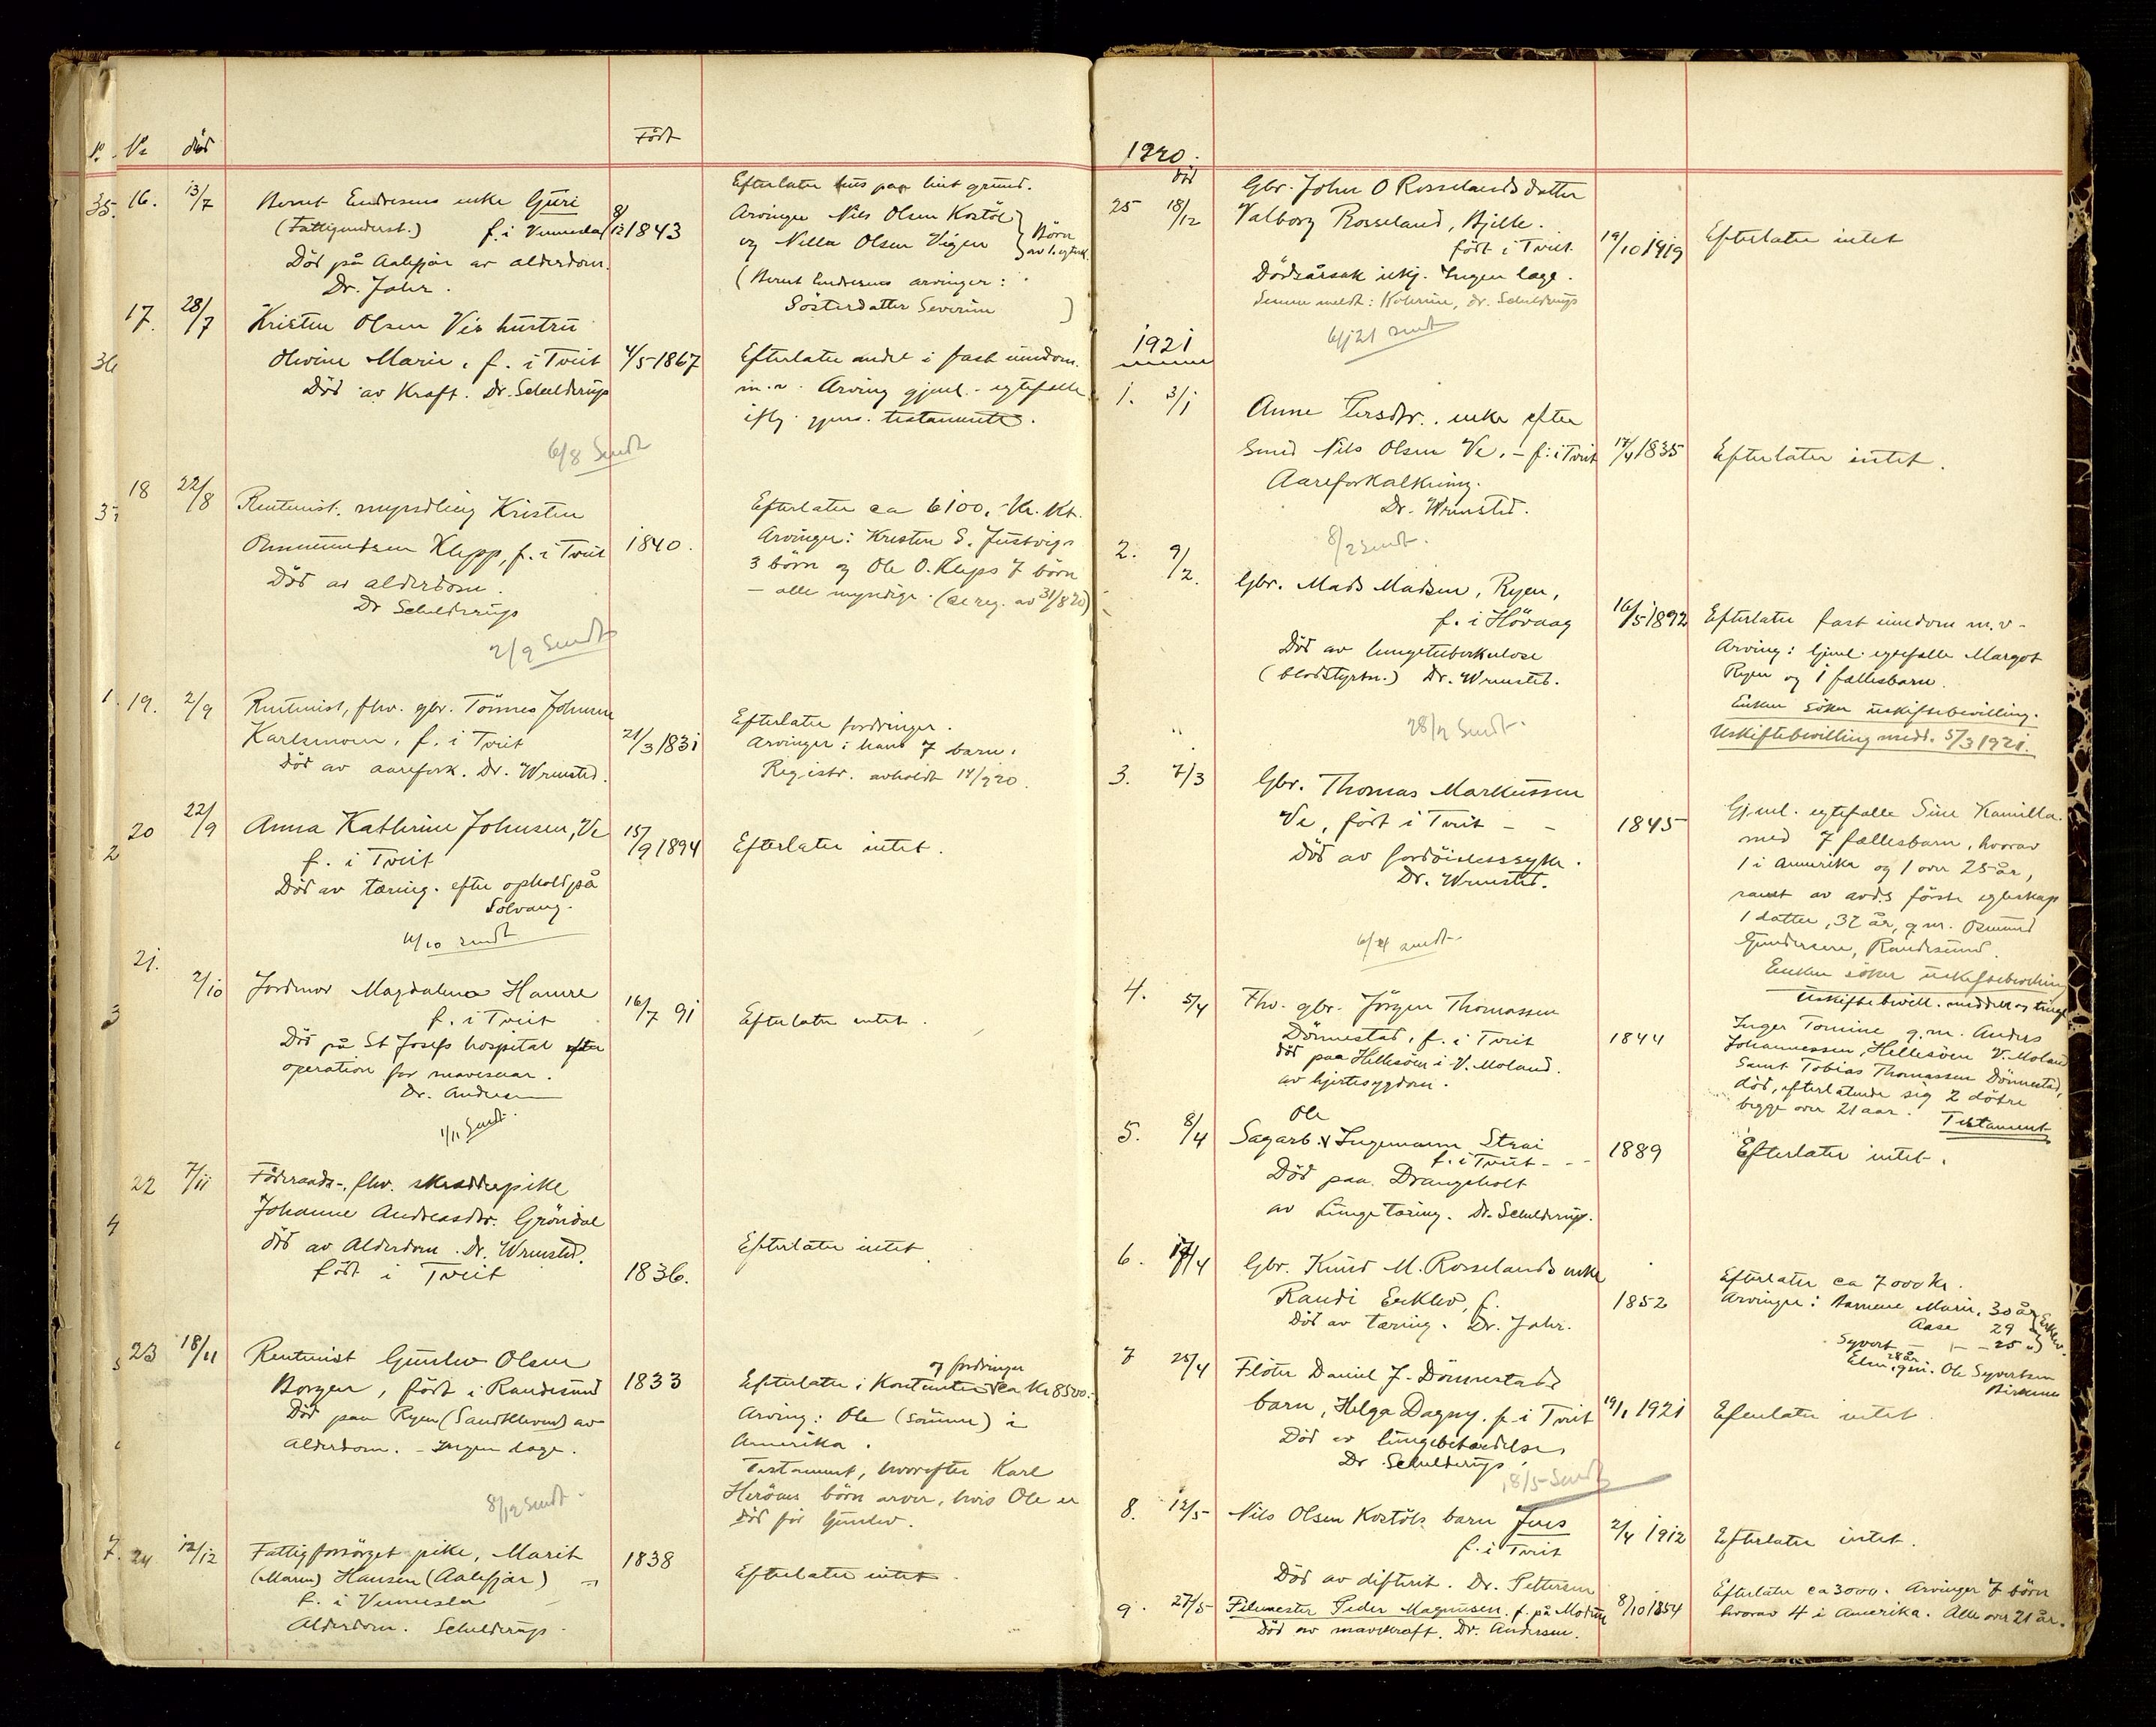 No død Født
16. 13/7 Bernt Endresens enke Guri
(Fattigunderst.) f. i Vennesla 9/12 1843
Død på Aalefjær av alderdom.
Dr. Jahr.
Efterlater hus paa leiet grund.
Arvinger Nils Olsen Kostöl
og Nilla Olsen Vigen } Börn
(Bernt Endresens arvinger:
Søsterdatter Severine )
17. 28/7 Kristen Olsen Ves hustru
Olivine Marie, f. i Tveit 4/5 1867
Død av Kræft. Dr. Schelderup
Efterlater andel i fast eiendom
m.v. Arving gjenl. egtefelle
iflg. gjens. testamente.
6/8 Sendt
18 22/8 Rentenist. myndling Kristen
Ommundsen Klepp, f. i Tveit 1840.
Død av alderdom.
Dr Schelderup
Efterlater ca 6100,- Kr. Kt.
Arvinger: Kristen S. Justvigs
3 börn og Ole O. Kleps 7 börn
- alle myndige. (se reg. av 31/8 20)
2/9 Sendt
19. 2/9 Rentenist, fhv. gbr. Tönnes Johnsen
Karlsmoen, f. i Tveit 21/3 1831
Död av aarefork. Dr. Wrensted.
Efterlater fordringer.
Arvinger: hans 7 barn.
Registr. avholdt 14/9 20.
20 22/9 Anna Kathrine Johnsen, Ve 15/9 1894
f. i Tveit
Død av tæring. efter ophold på
Solvang.
Efterlater intet.
4/10 sendt
21. 2/10 Jordmor Magdalena Hamre 16/7 91
f. i Tveit
Död på St Josefs hospital efter
operation for mavesaar.
Dr. Andersen
Efterlater intet.
1/11 Sendt.
22 7/11 Föderaads-, fhv. skrædderpike
Johanne Andreasdtr. Gröndal
död av Alderdom. Dr. Wrensted.
födt i Tveit 1836.
Efterlater intet.
23 18/11 Rentenist Gunlev Olsen
Borgen, födt i Randesund 1833
Död paa Ryen (Sandkleven) av
Alderdom. - Ingen læge.
og fordringer
Efterlater i Kontanter ca Kr 8500.-
Arving: Ole (sønnen) i
Amerika.
Testament, hvorefter Karl
Heröens börn arver, hvis Ole er
död för Gunlev.
8/12 Sendt.
24 12/12 Fattigforsörget pike, Marit
(Maren) Hansen (Aalefjær) 1838
f. i Vennesla
Alderdom. Schelderup.
Efterlater intet.
1920.
död
25 18/12 Gbr. John O Rosselands datter
Valborg Rosseland, Bjelke.
födt i Tveit. 19/10 1919
Dödsårsak ukj. Ingen læge.
Senere meldt: Kolerine, dr. Schelderup
Efterlater intet
6/1 21 sendt
1921
1. 3/1 Anne Persdtr. enke efter
Smed Nils Olsen Ve. - f. i Tveit 17/4 1835
Aareforkalkning.
Dr. Wrensted.
Efterlater intet.
8/2 sendt.
2. 9/2. Gbr. Mads Madsen, Ryen,
f. i Hövaag 16/5 1892
Död av lungetuberkulose
(blodstyrtn.) Dr. Wrensted.
Efterlater fast eiendom m.v.
Arving: Gjenl. egtefelle Margot
Ryen og 1 fællesbarn.
Enken söker uskiftebevilling.
Uskiftebevilling medd. 5/3 1921.
28/2 Sendt.
3. 7/3 Gbr. Thomas Markussen
Ve, födt i Tveit - - 1845
Död av fordöielsessygd.
Dr. Wrensted.
Gjenl. egtefelle Sine Kamilla
med 7 fællesbarn, hvorav
1 i Amerika og 1 over 25 år,
samt av avd.s förste egteskap
1 datter, 32 år, g.m. Osmund
Gundersen, Randesund.
Enken söker uskiftebevilling
Uskiftebevill. meddelt og tingl.
6/4 sendt.
4. 5/4 Fhv. gbr. Jörgen Thomassen
Dönnestad, f. i Tveit 1844
död paa Hellesöen i V. Moland.
av hjertesygdom.
Inger Tomine g.m. Anders
Johannessen, Hellesöen V. Moland
Samt Tobias Thomassen Dönnestad,
död, efterlatende sig 2 dötre
begge over 21 aar. Testament
5. 8/4 Sagarb. Ole Ingemann Strai
f. i Tveit - - 1889
Död paa Drangsholt
av Lungetæring. Dr. Schelderup.
Efterlater intet.
6. 17/4 Gbr. Knud M. Rosselands enke
Randi Eeklev, f. 1852
Död av Tæring. Dr. Jahr.
Efterlater ca 7000 kr.
Arvinger: Barnene Marie, 30 år
Aase 29 "
Syvert - 25 "
28 år
g.m. Ole Syvertsen
7 25/4 Flöter Daniel J. Dönnestads
barn, Helga Dagny, f. i Tveit 19/1 1921
Död av lungebetændelse.
Dr. Schelderup.
Efterlater intet.
18/5 Sendt
8. 12/5 Nils Olsen Kostöls barn Jens 2/4 1912
f. i Tveit
Död av difterit. Dr. Pettersen
Efterlater intet.
9. 27/5 Filemester Peder Magnusen. f. på Modum 8/10 1854
Död av mavekræft. Dr. Andersen.
Efterlater ca 3000. Arvinger 7 börn
hvorav 4 i Amerika. Alle over 21 år.